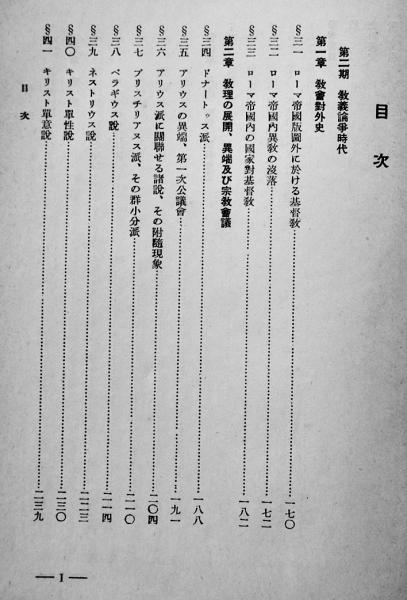 目次
第二期 敎義論爭時代
第一章 敎會對外史
§三一 ローマ帝國版圖外に於ける基督敎……一七〇
§三二 ローマ帝國內異敎の沒落……一七二
§三三 ローマ帝國內の國家對基督敎……一八二
第二章 敎理の展開、異端及び宗敎會議
§三四 ドナートゥス派……一八八
§三五 アリウスの異端、第一次公議會……一九一
§三六 アリウス派に關聯せる諸說、その附隨現象……二〇四
§三七 プリスチリアヌス派、その群小分派……二一〇
§三八 ペラギウス說……二一四
§三九 ネストリウス說……二二三
§四〇 キリスト單性說……二三〇
§四一 キリスト單意說……二三九
目次
— 1 —